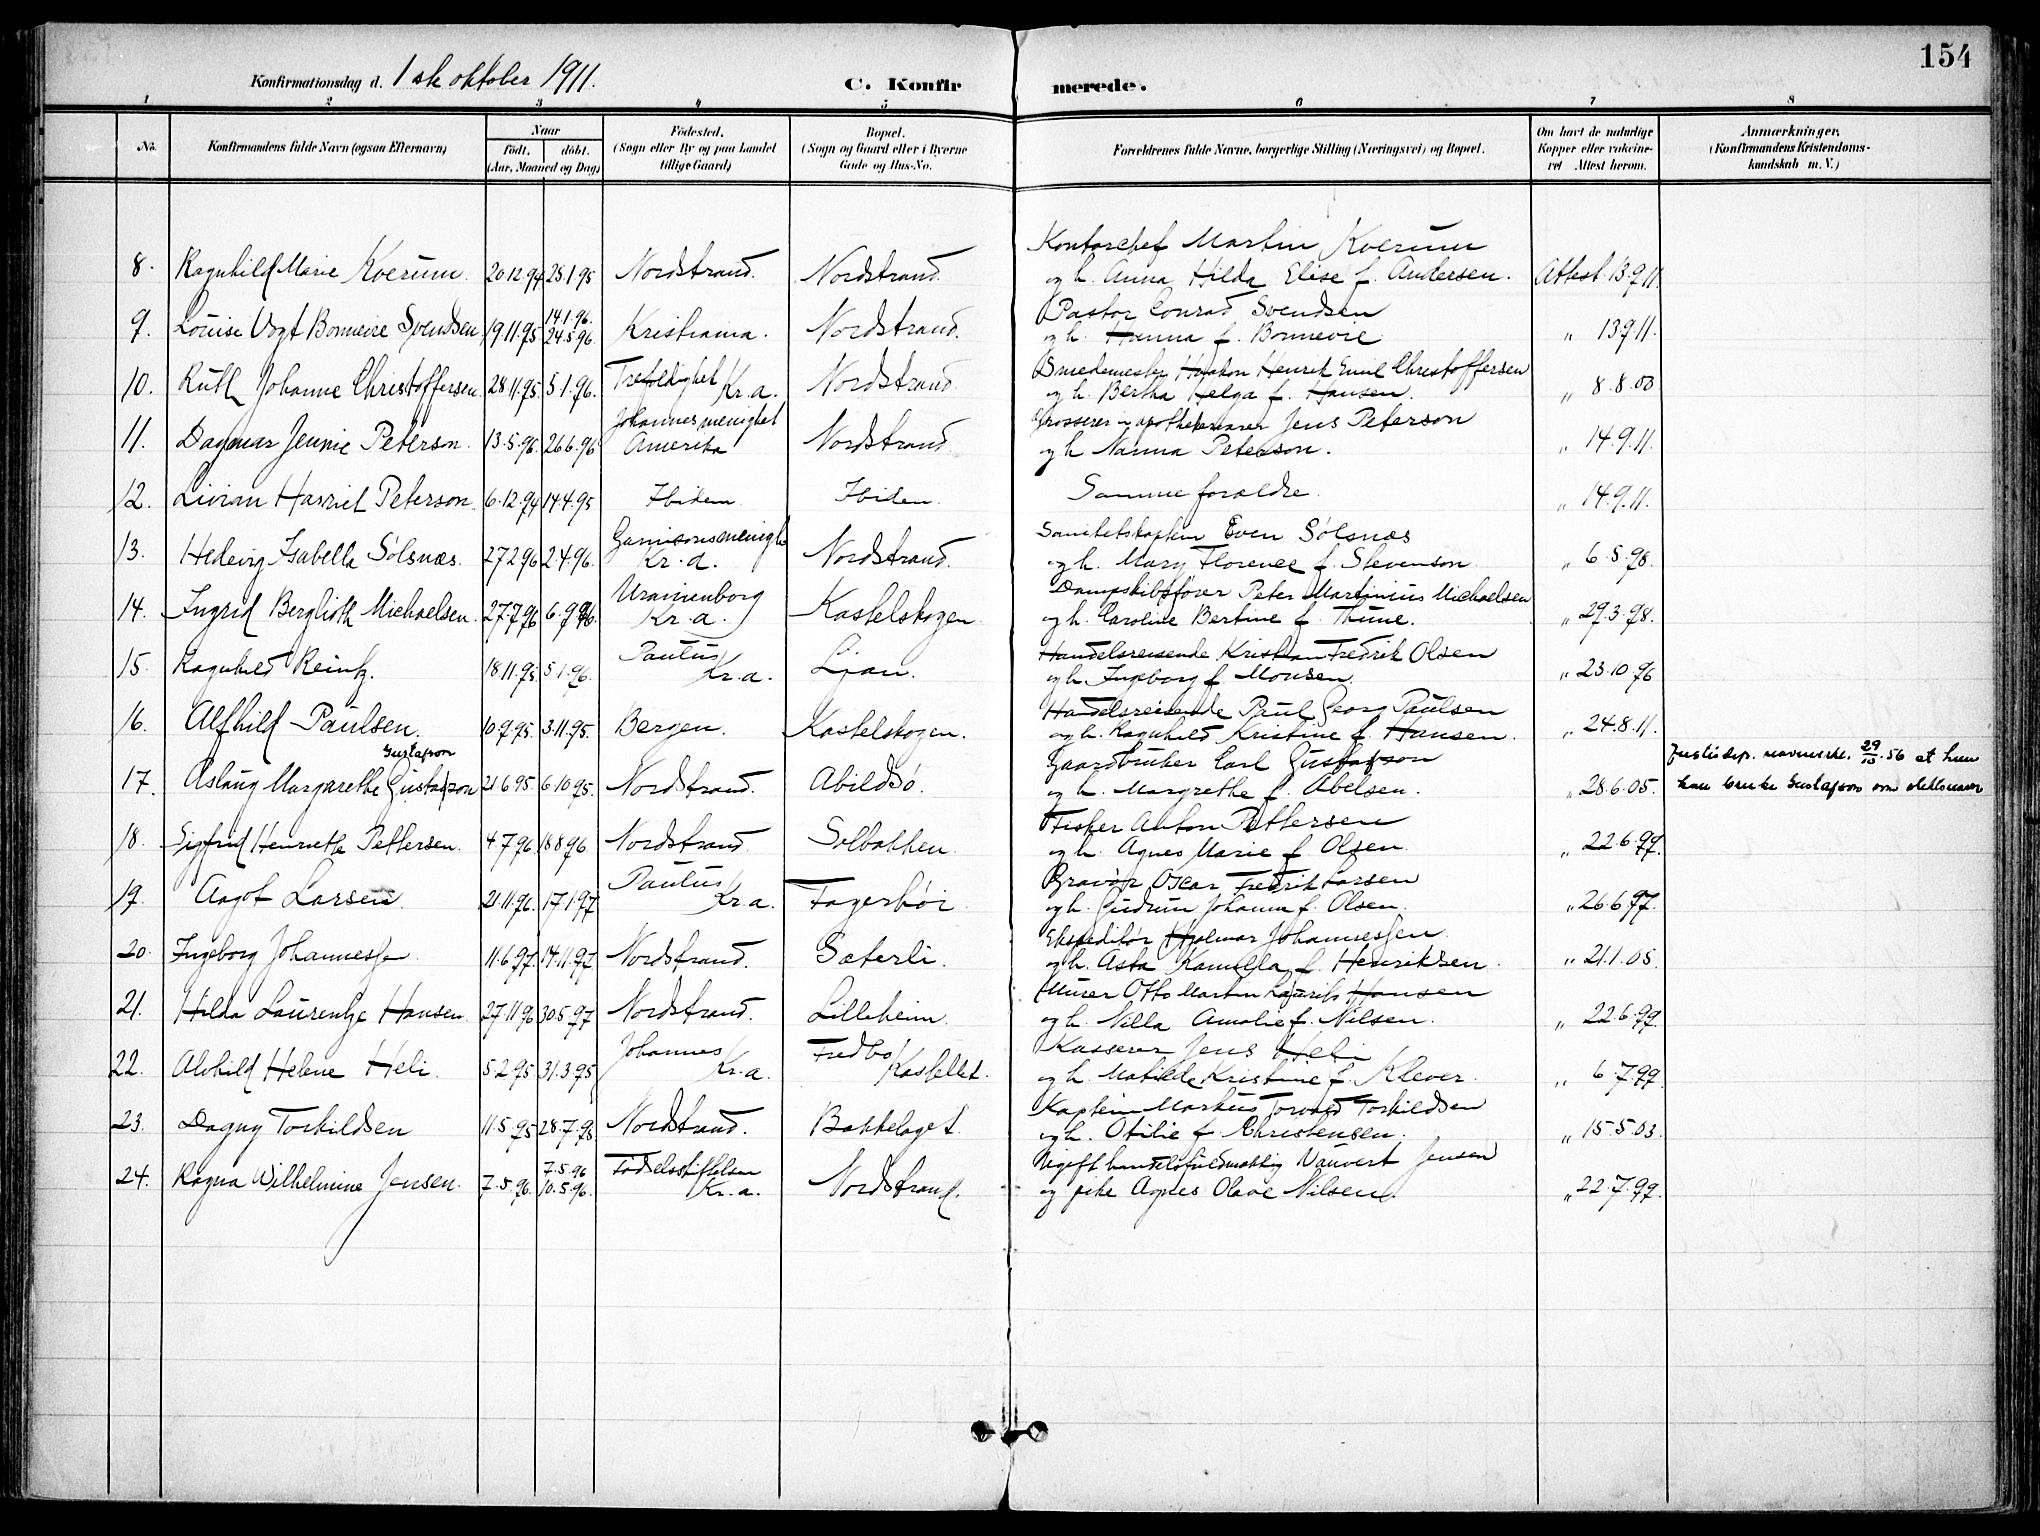 154
Konfirmationsdag d. 1ste oktober 1911.
C. Konfirmerede.
1 2 3 4 5 6 7 8
No.
Konfirmandens fulde Navn (ogsaa Efternavn)
Naar
født. døbt.
(Aar, Maaned og Dag)
Fødested.
(Sogn eller By og paa Landet
tillige Gaard)
Bopæl.
(Sogn og Gaard eller i Byerne
Gade og Hus-No.
Forældrenes fulde Navne, borgerlige Stilling (Næringsvei) og Bopæl.
Om havt de naturlige
Kopper eller vakcine-
ret Attest herom.
Anmærkninger,
(Konfirmandens Kristendoms-
kundskab m. V.)
Kontorchef Martin Kverum
8. Ragnhild Marie Kverum. 20.12.94 25.1.95 Nordstrand. Nordstrand. og h. Anna Hilda Elise f. Andersen. Attest 13.9.11.
14.1.96. Pastor Conrad Svendsen
9. Louise Vogt Bonnevie Svendsen 19.11.95 24.5.96. Kristiania. Nordstrand. og h. Hanna f. Bonnevie „ 13.9.11.
Trefoldighet Smedemester Haakon Henrik Emil Christoffersen
10. Ruth Johanne Christoffersen. 28.11.95. 5.1.96. Kr.a. Nordstrand. og h. Bertha Helga f. Hansen. „ 8.8.00
Johannesmenighet Grosserer Jens Peterson
11. Dagmar Jennie Peterson. 13.5.96. 26.6.96 Amerika Nordstrand og h Nanna Peterson. „ 14.9.11.
12. Livian Harriet Peterson. 6.12.94 14.4.95 Ibidem Ibidem. Samme forældre. „ 14.9.11.
Garnisonsmenigh Sanitetskaptein Even Sølsnæs
13. Hedevig Isabella Sølsnæs. 27.2.96 2.4.96. Kr.a. Nordstrand. og h. Mary Florence f. Stevenson. „ 6.5.98.
Uranienborg Dampskibsfører Peter Martinius Michaelsen
14. Ingrid Berglioth Michaelsen. 27.7.96 6.9.96. Kr.a. Kastelskogen. og h. Caroline Bertine f. Thune. „ 29.3.98.
Paulus Handelsreisende Kristian Fredrik Olsen
15. Ragnhild Reintz. 18.11.95. 5.1.96. Kr.a. Ljan. og h. Ingeborg f. Monsen. „ 23.10.96
Handelsreisende Paul Georg Paulsen
16. Alfhild Paulsen. 10.9.95 3.11.95. Bergen. Kastelskogen. og h. Ragnhild Kristine f. Hansen. „ 24.8.11.
Gustafson Gaardbruker Carl Gustafson Justisdep. 29/10.56 at hun
17. Aslaug Margarethe Gustafson 21.6.95. 6.10.95. Nordstrand. Abildsø. og h. Margrethe f. Abelsen. „ 28.6.05. kan bruke Gustafson som slektsnavn
Fisker Anton Pettersen
18. Sigfrid Henriette Pettersen. 4.7.96. 18.8.96 Nordstrand. Solbakken. og h. Agnes Marie f. Olsen. „ 22.6.99.
Paulus Gravør Oscar Fredrik Larsen
19. Aagot Larsen. 21.11.96. 17.1.97 Kr.a. Fagerhøi. og h. Gudrun Johanna f. Olsen. „ 26.6.97.
Ekspeditør Hjalmar Johannessen
20. Ingeborg Johannessen 11.6.97. 14.11.97 Nordstrand. Sæterli. og h. Asta Kamilla f. Henriksen. „ 21.1.05.
Murer Otto Martin Laurits Hansen
21. Hilda Laurentze Hansen. 27.11.96 30.5.97 Nordstrand. Lilleheim. og h. Nilla Amalie f. Nilsen. „ 22.6.99.
Johannes Fredbo Kasserer Jens Heli
22. Alvhild Helene Heli. 5.2.95 31.3.95 Kr.a. Kastellet. og h. Matilde Kristine f. Klever. „ 6.7.99.
Kaptein Markus Torvald Torkildsen
23. Dagny Torkildsen 11.5.95 28.7.95 Nordstrand. Bækkelaget. og h. Otilie f. Christensen. „ 15.5.03.
7.5.96 Fødselsstiftelsen Ugift handelsfuldmægtig Nauvert Jensen
24. Ragna Wilhelmine Jensen. 7.5.96. 10.5.96. Kr.a. Nordstrand. og pike Agnes Olave Nilsen. „ 22.7.99.